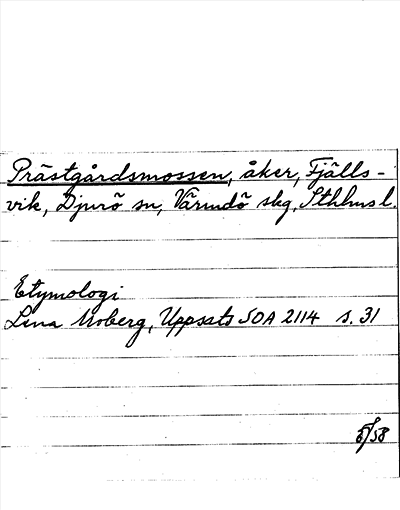 Prästgårdsmossen, åker, Fjälls-
vik, Djurö sn, Värmdö skg, Sthlms l.
Etymologi
Lena Moberg, Uppsats SOA 2114 s. 31
/58